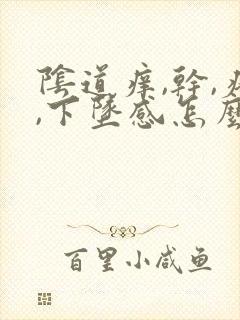 陰道痒,幹,
,下墜感怎麼
百里小咸鱼